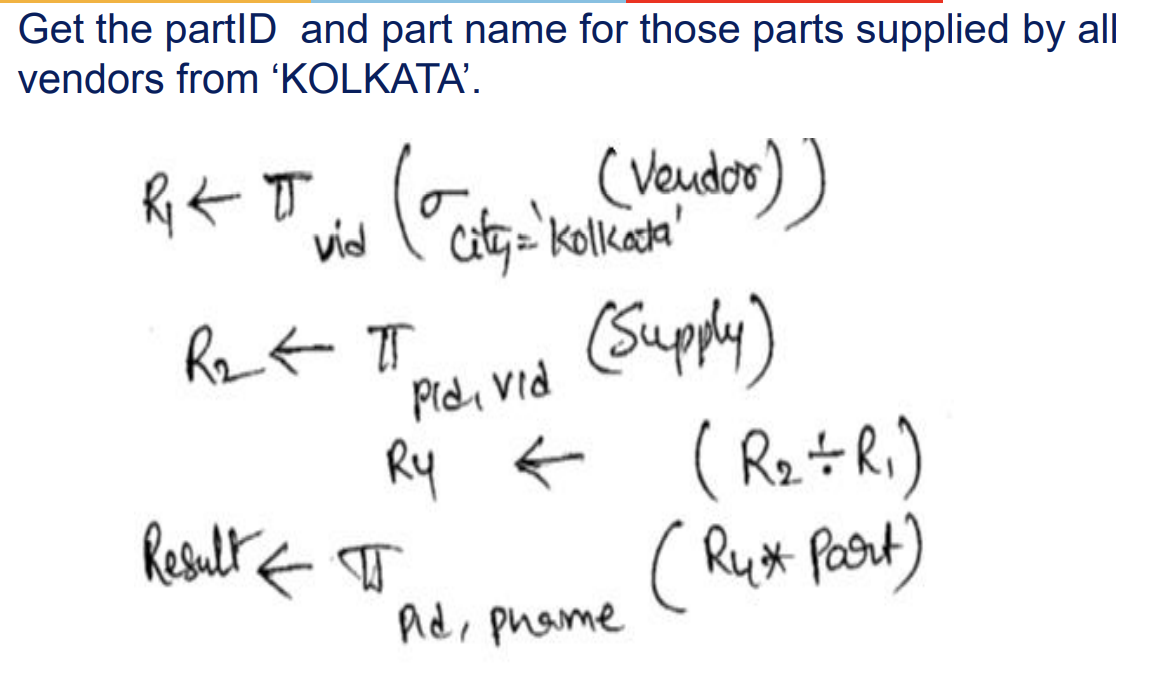 Get the partID and part name for those parts supplied by all
vendors from ‘KOLKATA’.
R1 ← π vid (σ city='Kolkata' (Vendor))
R2 ← π pid, vid (Supply)
R4 ← (R2 ÷ R1)
Result ← π pid, pname (R4 * Part)